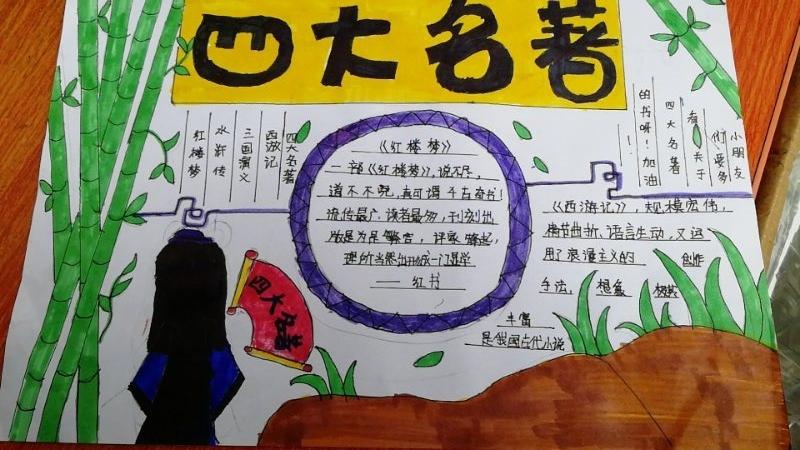 四大名著
四大名著
西游记
三国演义
水浒传
红楼梦
小朋友
们要多
看关于
四大名著
的书呀！加油
！
《红楼梦》
一部《红楼梦》，说不尽，
道不不完，真可谓千古奇书！
流传最广，读者最多，刊刻出
版是为足繁言，评家
理所当然出形成一门显学
——红书
《西游记》，规模宏伟，
情节曲折，语言生动，又运
用了浪漫主义的 创作
手法，想象
丰富
是俄国古代小说
四大名著